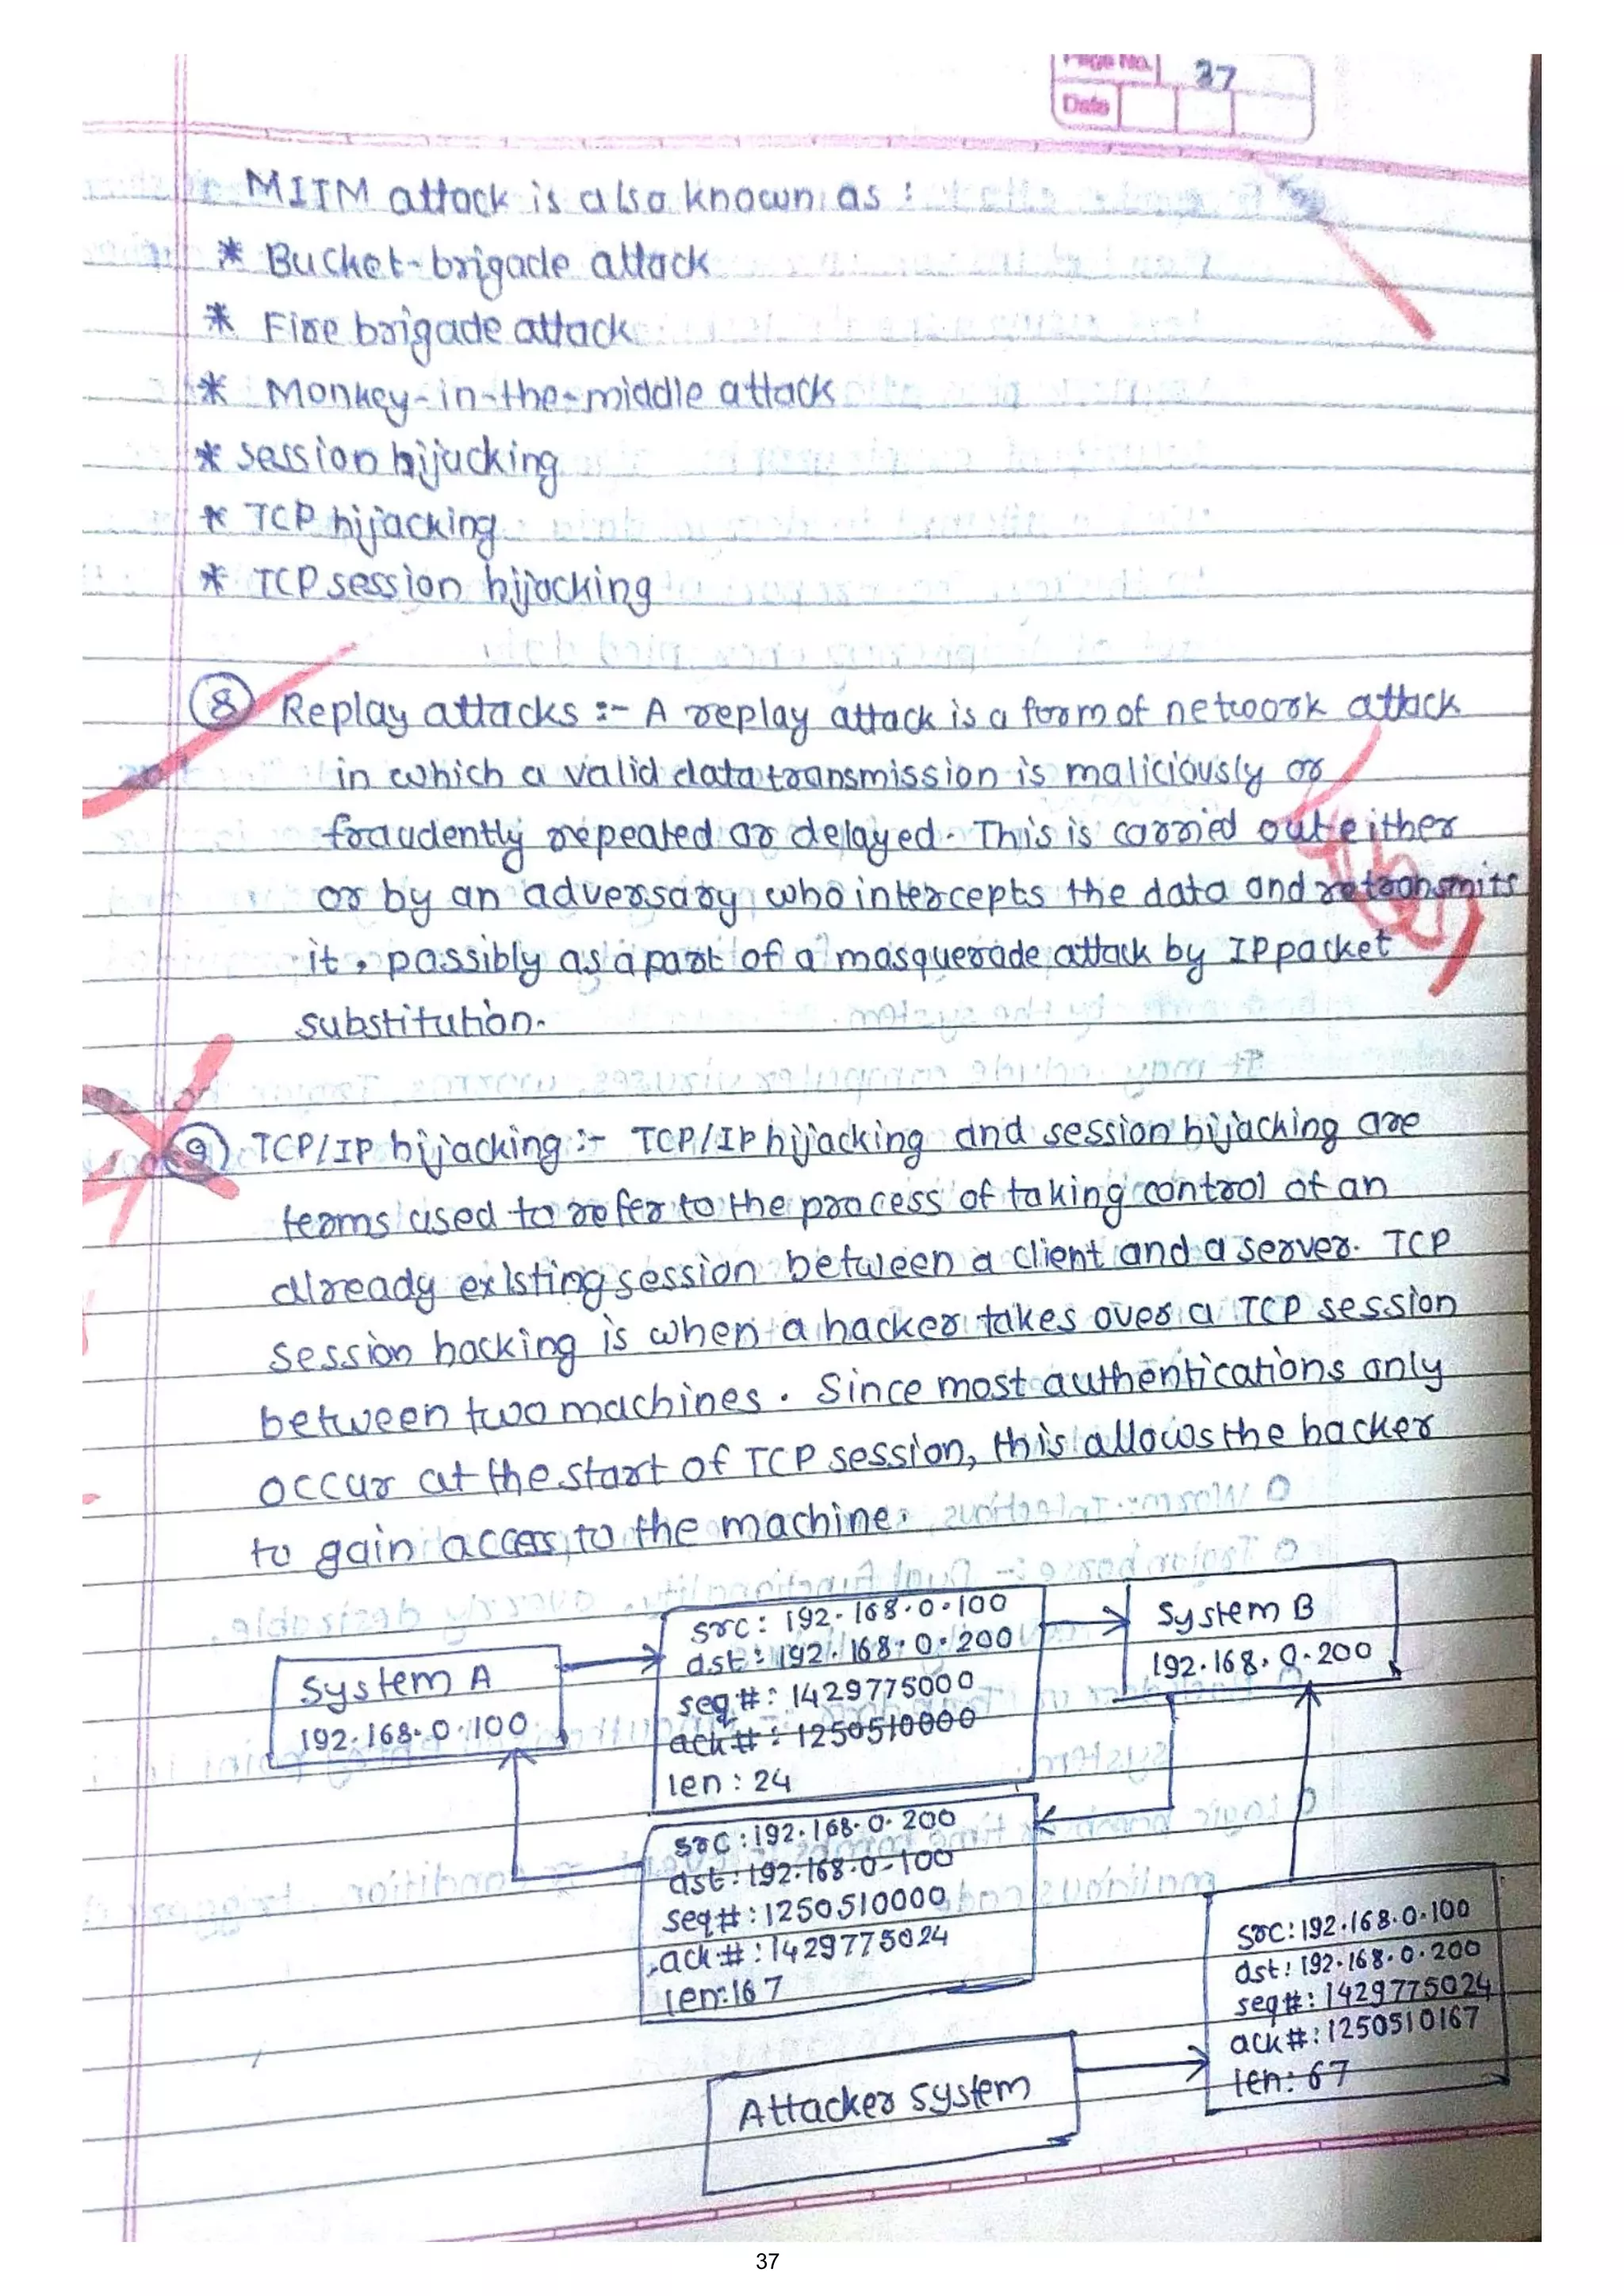 Page No. 37
Date
MITM attack is also known as :
* Bucket-brigade attack
* Fire brigade attack
* Monkey-in-the-middle attack
* session hijacking
* TCP hijacking
* TCP session hijacking
⑧ Replay attacks :- A replay attack is a form of network attack
in which a valid data transmission is maliciously or
fraudently repeated or delayed. This is carried out either
or by an adversary who intercepts the data and retransmits
it, possibly as a part of a masquerade attack by IP packet
substitution.
⑨ TCP/IP hijacking :- TCP/IP hijacking and session hijacking are
terms used to refer to the process of taking control of an
already existing session between a client and a server. TCP
session hacking is when a hacker takes over a TCP session
between two machines. Since most authentications only
occur at the start of TCP session, this allows the hacker
to gain access to the machine.
System A
192.168.0.100
src: 192.168.0.100
dst: 192.168.0.200
seq#: 1429775000
ack#: 1250510000
len: 24
System B
192.168.0.200
src: 192.168.0.200
dst: 192.168.0.100
seq#: 1250510000
ack#: 1429775024
len: 167
src: 192.168.0.100
dst: 192.168.0.200
seq#: 1429775024
ack#: 1250510167
len: 67
Attacker system
37